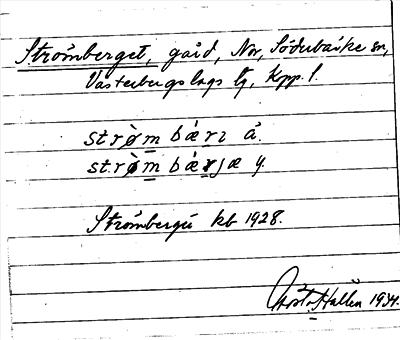 Strömberget, gård, Nor, Söderbärke sn,
Västerbergslags tg, Kpp. l.
strø̀m bǽrɩ ä.
strø̀m bǽrjæ y.
Strömberget kb 1928.
Gösta Hallén 1934.